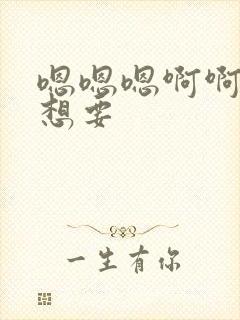 嗯嗯嗯啊啊
想要
一生有你